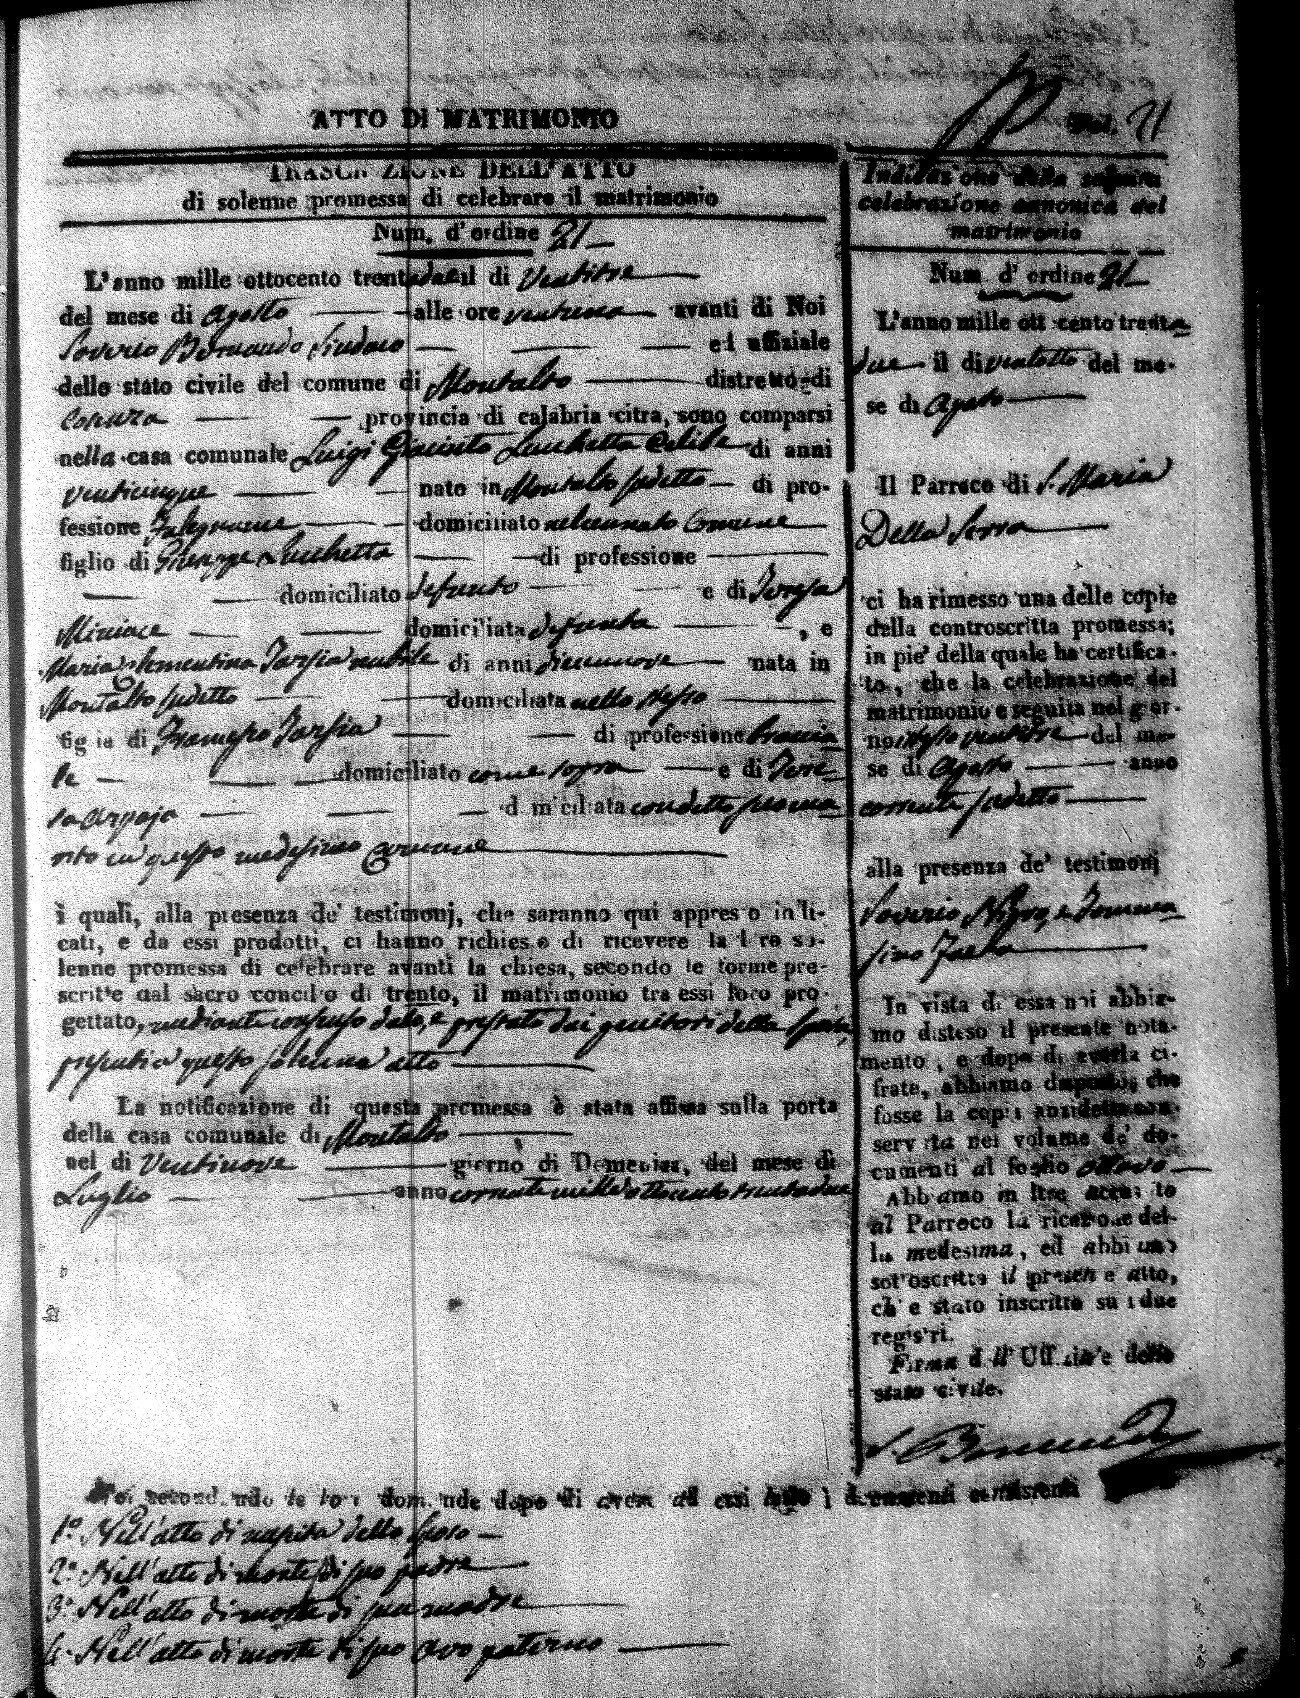 ATTO DI MATRIMONIO
Fol. 21
TRASCRIZIONE DELL'ATTO
di solenne promessa di celebrare il matrimonio
Num. d'ordine 21
L'anno mille ottocento trentadue il di Ventitre
del mese di Agosto alle ore avanti di Noi
Saverio Bernaudo Sindaco ed uffiziale
dello stato civile del comune di Montalto distretto di
Cosenza provincia di calabria citra, sono comparsi
nella casa comunale Luigi Giacinto Lucchetta Celibe di anni
venticinque nato in Montalto sudetto di pro-
fessione Falegname domiciliato nel cennato Comune
figlio di Giuseppe Lucchetta di professione
domiciliato defunto e di Teresa
Miniace domiciliata defunta , e
Maria Clementina Tarsia nubile di anni diecinnove nata in
Montalto sudetto domiciliata nello stesso
figlia di Francesco Tarsia di professione Braccia
le domiciliato come sopra e di Tere-
sa Arpaja domiciliata condetto suo ma
rito in questo medesimo Comune
i quali, alla presenza de' testimonj, che saranno qui appresso indi-
cati, e da essi prodotti, ci hanno richiesto di ricevere la loro so-
lenne promessa di celebrare avanti la chiesa, secondo le forme pre-
scritte dal sacro concilio di trento, il matrimonio tra essi loro pro-
gettato, mediante consenso dato, e prestato dai genitori della sposa,
presenti a questo solenne atto
La notificazione di questa promessa è stata affissa sulla porta
della casa comunale di Montalto
nel di Ventinove giorno di Domenica, del mese di
Luglio anno corrente mille ottocento trentadue
Noi secondando le loro domande dopo di aver ad essi letto i documenti consistenti
1.° Nell'atto di nascita dello sposo
2.° Nell'atto di morte di suo padre
3.° Nell'atto di morte di sua madre
4. Nell'atto di morte di suo avo paterno
Indicazione della seguita
celebrazione canonica del
matrimonio
Num. d'ordine 21
L'anno mille ottocento trenta
due il di ventotto del me-
se di Agosto
Il Parroco di S. Maria
Della Serra
ci ha rimesso una delle copie
della controscritta promessa;
in pie' della quale ha certifica-
to, che la celebrazione del
matrimonio e seguita nel gior-
no istesso ventitre del me-
se di Agosto anno
corrente sudetto
alla presenza de' testimonj
Saverio Nigro, e Tomma-
sino
In vista di essa noi abbia-
mo disteso il presente nota-
mento, e dopo di averla ci-
frata, abbiamo disposto, che
fosse la copia anzidetta con-
servata nel volume de' do-
cumenti al foglio ottavo
Abbiamo inoltre accusato
al Parroco la ricezione del-
la medesima, ed abbiamo
sottoscritto il presente atto,
ch'è stato inscritto su i due
registri.
Firma dell'Uffiziale dello
stato civile.
S. Bernaudo